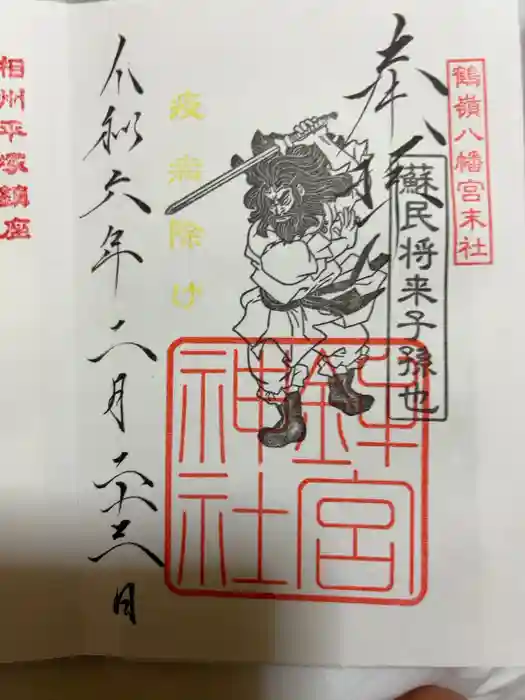 鶴嶺八幡宮末社
奉拝
蘇民将来子孫也
疫病除け
鉾宮
神社
令和六年二月二十日
相州平塚鎮座